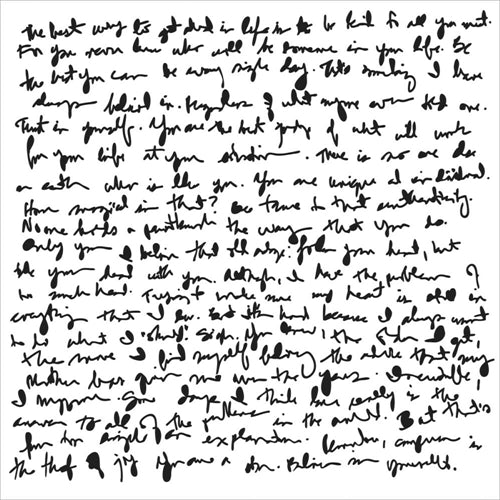 The best way to get ahead in life is to be kind to all you meet.
For you never know who will be someone in your life. Be
the best you can be every single day. This something I have
always believed in. Regardless of what anyone ever told me.
Trust in yourself. You are the best judge of what will work
for your life at your. There is no one else
on earth who is like you. You are unique and individual.
How magical is that? Be true to that authenticity.
No one holds a the way that you do.
Only you. I believe that old adage: follow your heart, but
take your head with you. Although, I have the problem of
too much heart. Trying to make sure my heart is in
everything that I do. Is it hard because I always want
to do what I "should". Sigh. You know, the older I get,
the more I find myself following the advice that my
Mother has given me over the years. Incredible,
I suppose. Some days I think love really is the
answer to all of the problems in the world. But that's
far too simple of an explanation. Remember, comparison is
the thief of joy. You are a star. Believe in yourself.